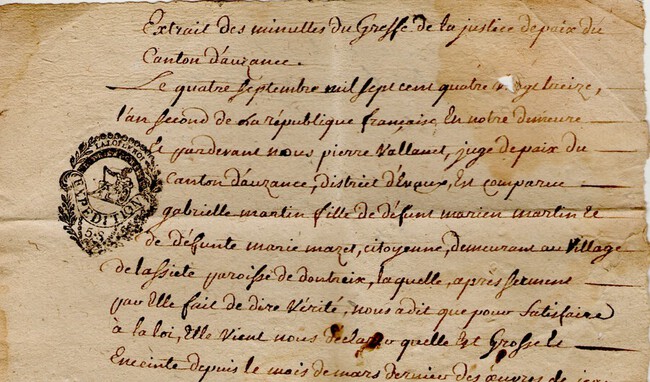 Extrait des minuttes du Greffe de la justice de paix du
Canton d'auzance.
Le quatre septembre mil sept cent quatre vingt treize,
l'an second de La république française, En notre demeure
Et pardevant nous pierre Vallanet, juge de paix du
Canton d'auzance, district d'Evaux, Est comparue
gabrielle martin fille de défunt marien martin Et
de défunte marie mazet, citoyenne, demeurant au Village
de lassiete paroisse de dontreix, laquelle, après serment
par Elle fait de dire Vérité, nous a dit que pour Satisfaire
à la loi, Elle vient nous déclarer quelle Est Grosse Et
Enceinte depuis le mois de mars dernier des œuvres de
LA LOI ET LE ROI
EXPEDITION
5. S